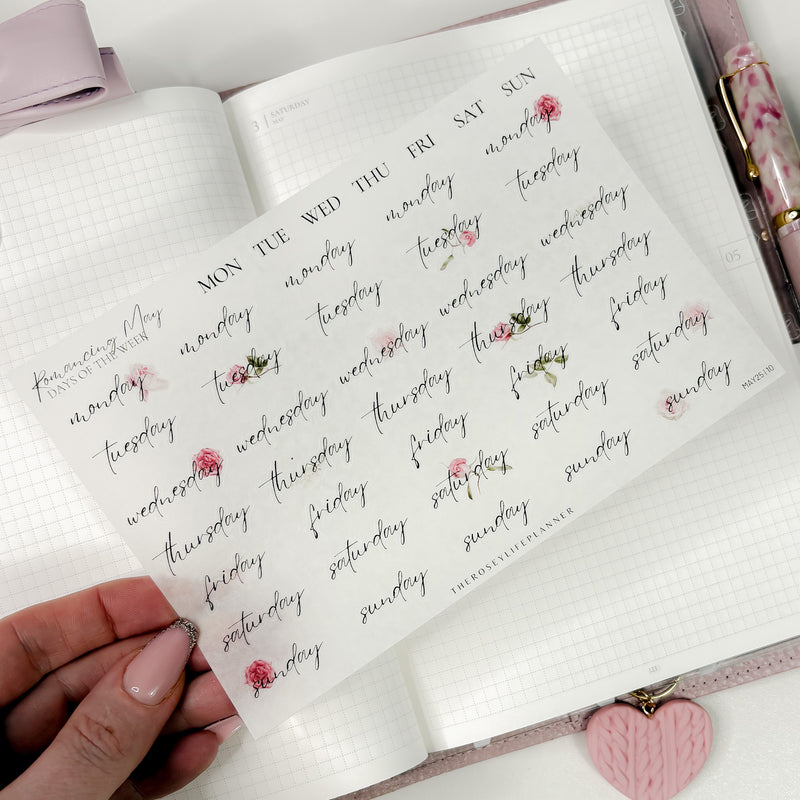 3 | SATURDAY
MAY
Romancing May
DAYS OF THE WEEK
MON TUE WED THU FRI SAT SUN
monday monday monday monday monday
tuesday tuesday tuesday tuesday tuesday
wednesday wednesday wednesday wednesday wednesday
thursday thursday thursday thursday thursday
friday friday friday friday friday
saturday saturday saturday saturday saturday
sunday sunday sunday sunday sunday
THEROSEYLIFEPLANNER
MAY25L10
05